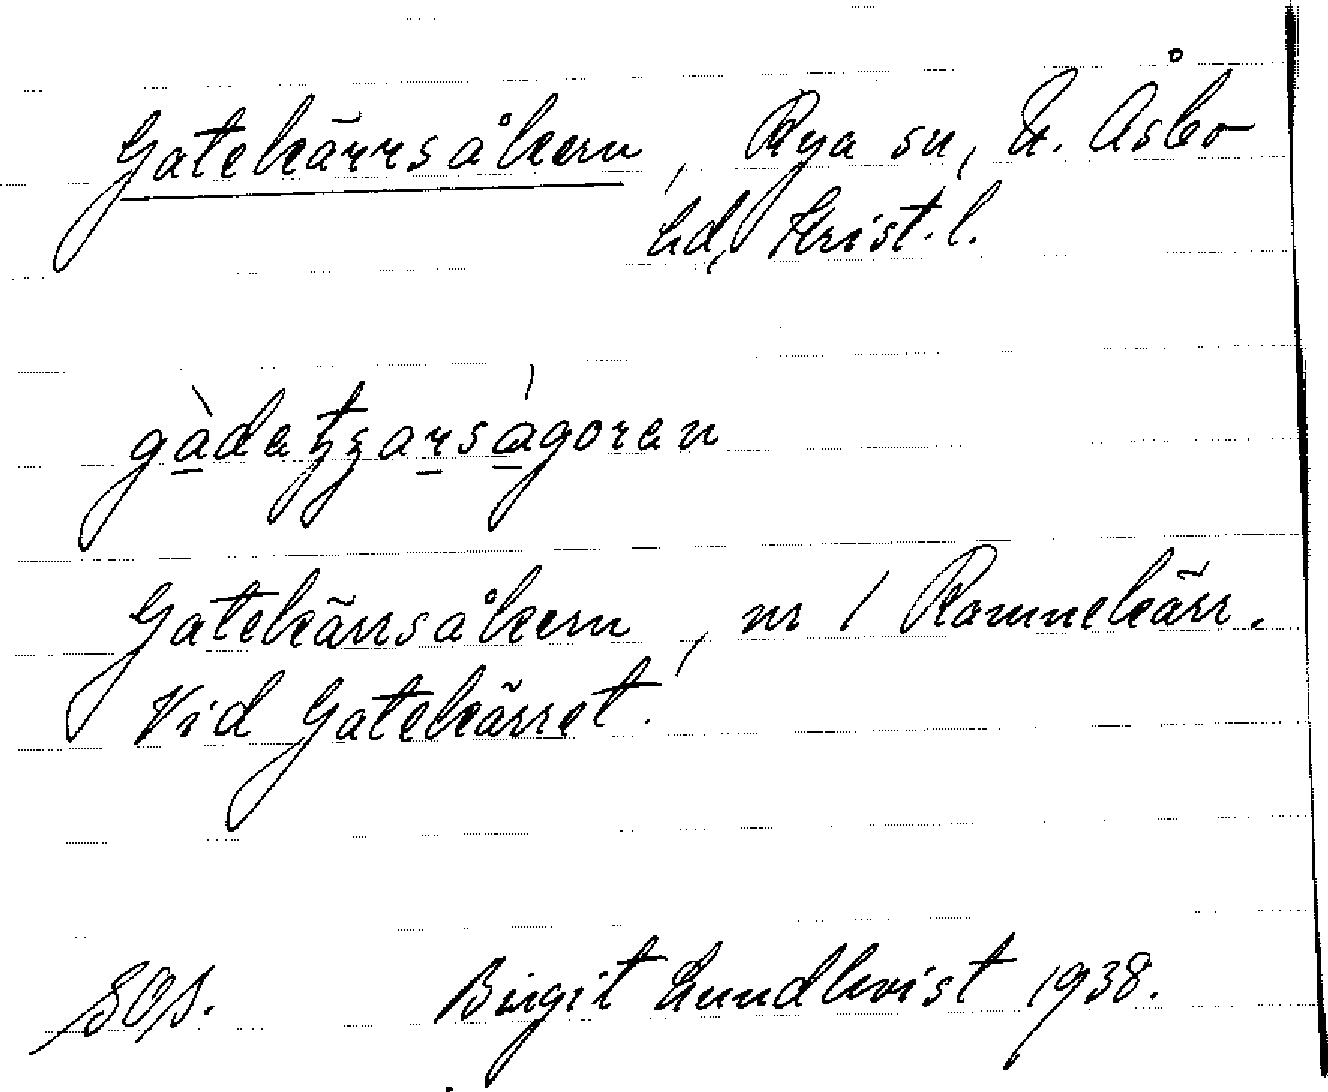 Gatekärrsåkern, Rya sn, N. Åsbo
hd, Krist. l.
gàdatʒʒarságoren
Gatekärrsåkern, nr 1 Rammekärr.
Vid Gatekärret.
Birgit Lundkvist 1938.